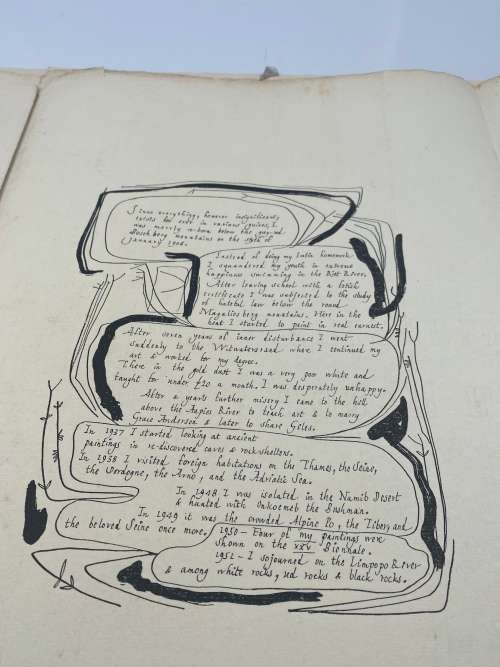 Since everything, however insignificant,
exists for ever in various guises, I
was merely re-born below the
Bosch berg mountains on the sixth of
January 1906.
Instead of doing my Latin homework
I squandered my youth in extreme
happiness swimming in the Riet River.
After leaving school with a fetish
certificate I was subjected to the study
of hateful law below the round
Magalies berg mountains. Here in the
heat I started to paint in real earnest.
After seven years of inner disturbance I went
suddenly to the Witwatersrand where I continued my
art & worked for my degree.
There in the gold dust I was a very poor white and
taught for under £20 a month. I was desperately unhappy.
After a year's further misery I came to the hill
above the Aapies River to teach art & to marry
Grace Anderson & later to share Giles.
In 1937 I started looking at ancient
paintings in re-discovered caves & rock shelters.
In 1938 I visited foreign habitations on the Thames, the Seine,
the Dordogne, the Arno, and the Adriatic Sea.
In 1948 I was isolated in the Namib Desert
& hunted with Onkoemeb the Bushman.
In 1949 it was the crowded Alpine Po, the Tiber, and
the beloved Seine once more. 1950 – Four of my paintings were
shown on the XXV Biennale.
1951 – I sojourned on the Limpopo River
& among white rocks, red rocks & black rocks.